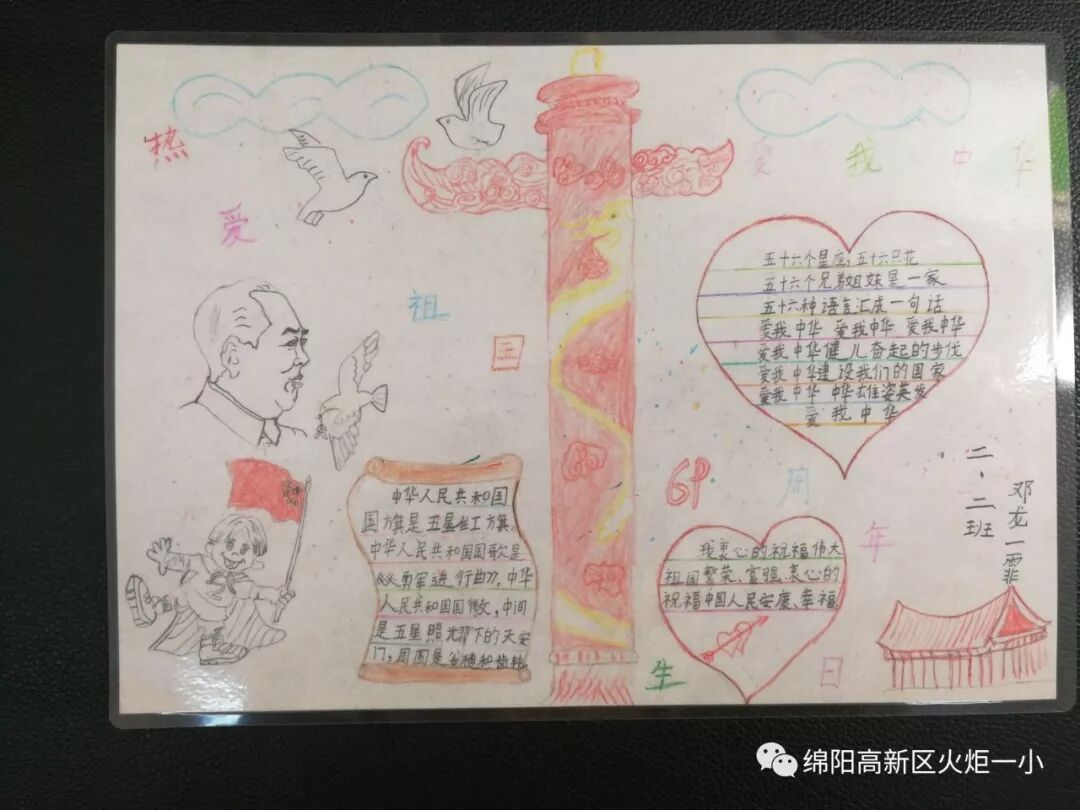 热爱祖国
爱我中华
五十六个星座,五十六只花
五十六个兄弟姐妹是一家
五十六种语言汇成一句话
爱我中华 爱我中华 爱我中华
爱我中华健儿奋起的步伐
爱我中华建设我们的国家
爱我中华 中华雄姿英发
爱我中华
中华人民共和国
国旗是五星红旗。
中华人民共和国国歌是
《义勇军进行曲》。中华
人民共和国国徽,中间
是五星照光耀下的天安
门,周围是谷穗和齿轮
69周年
生日
我衷心的祝福伟大
祖国繁荣、富强,衷心的
祝福中国人民安康、幸福
二.二班
邓龙一霏
绵阳高新区火炬一小